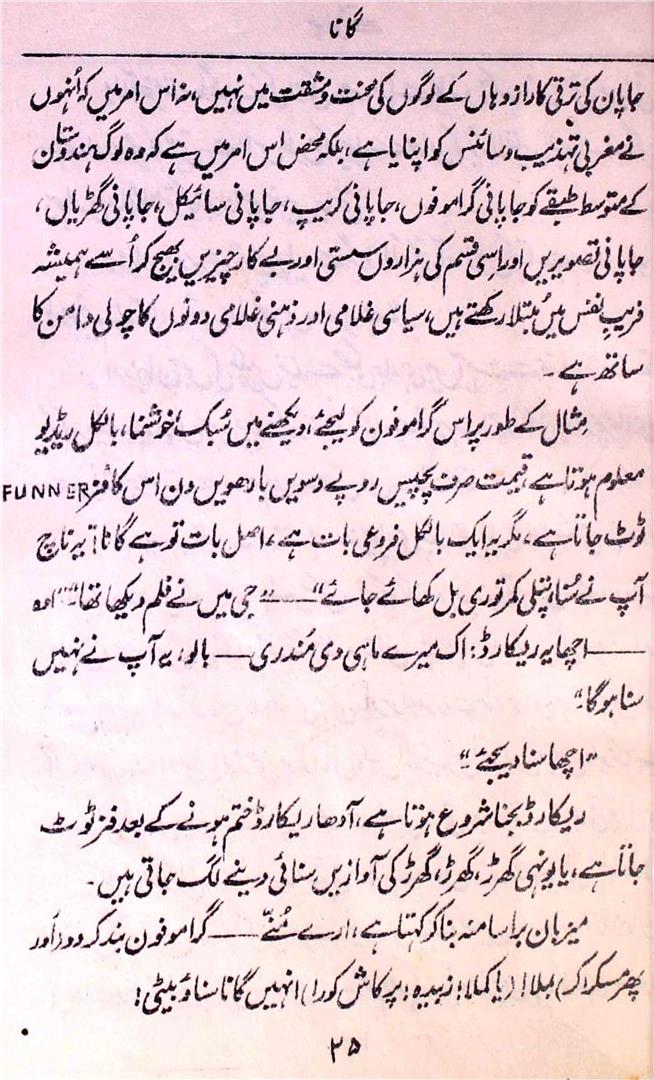 گانا
جاپان کی ترقی کا راز وہاں کے لوگوں کی محنت و مشقت میں نہیں، نہ اس امر میں کہ اُنہوں
نے مغربی تہذیب و سائنس کو اپنایا ہے، بلکہ محض اس امر میں ہے کہ وہ لوگ ہندوستان
کے متوسط طبقے کو جاپانی گراموفون، جاپانی کریپ، جاپانی سائیکل، جاپانی گھڑیاں،
جاپانی تصویریں اور اسی قسم کی ہزاروں سستی اور بے کار چیزیں بھیج کر اُسے ہمیشہ
فریبِ نفس میں مبتلا رکھتے ہیں، سیاسی غلامی اور ذہنی غلامی دونوں کا چولی دامن کا
ساتھ ہے۔
مثال کے طور پر اس گراموفون کو لیجئے، دیکھنے میں سُبک، خوشنما، بالکل ریڈیو
معلوم ہوتا ہے، قیمت صرف پچیس روپے دسویں بارھویں دن اس کا فنر FUNNER
ٹوٹ جاتا ہے، مگر یہ ایک بالکل فروعی بات ہے، اصل بات تو ہے گانا! "یہ ناچ
آپ نے سُنا، پتلی کمر توری بل کھائے جائے" — "جی میں نے فلم دیکھا تھا" "اوہ
— اچھا یہ ریکارڈ: اک میرے ماہی دی مُندری — بالو، یہ آپ نے نہیں
سنا ہوگا"
"اچھا سنا دیجئے"
ریکارڈ بجنا شروع ہوتا ہے، آدھا ریکارڈ ختم ہونے کے بعد فنر ٹوٹ
جاتا ہے، یا یونہی گھرڑ، گھرڑ، گھرڑ کی آوازیں سنائی دینے لگ جاتی ہیں۔
میزبان برا سا منہ بنا کر کہتا ہے، ارے مُنّے — گراموفون بند کر دو، (اور
پھر مسکرا کر) بملا! (یا کملا! زبیدہ! پرکاش کور!) انہیں گانا سناؤ بیٹی!
۲۵